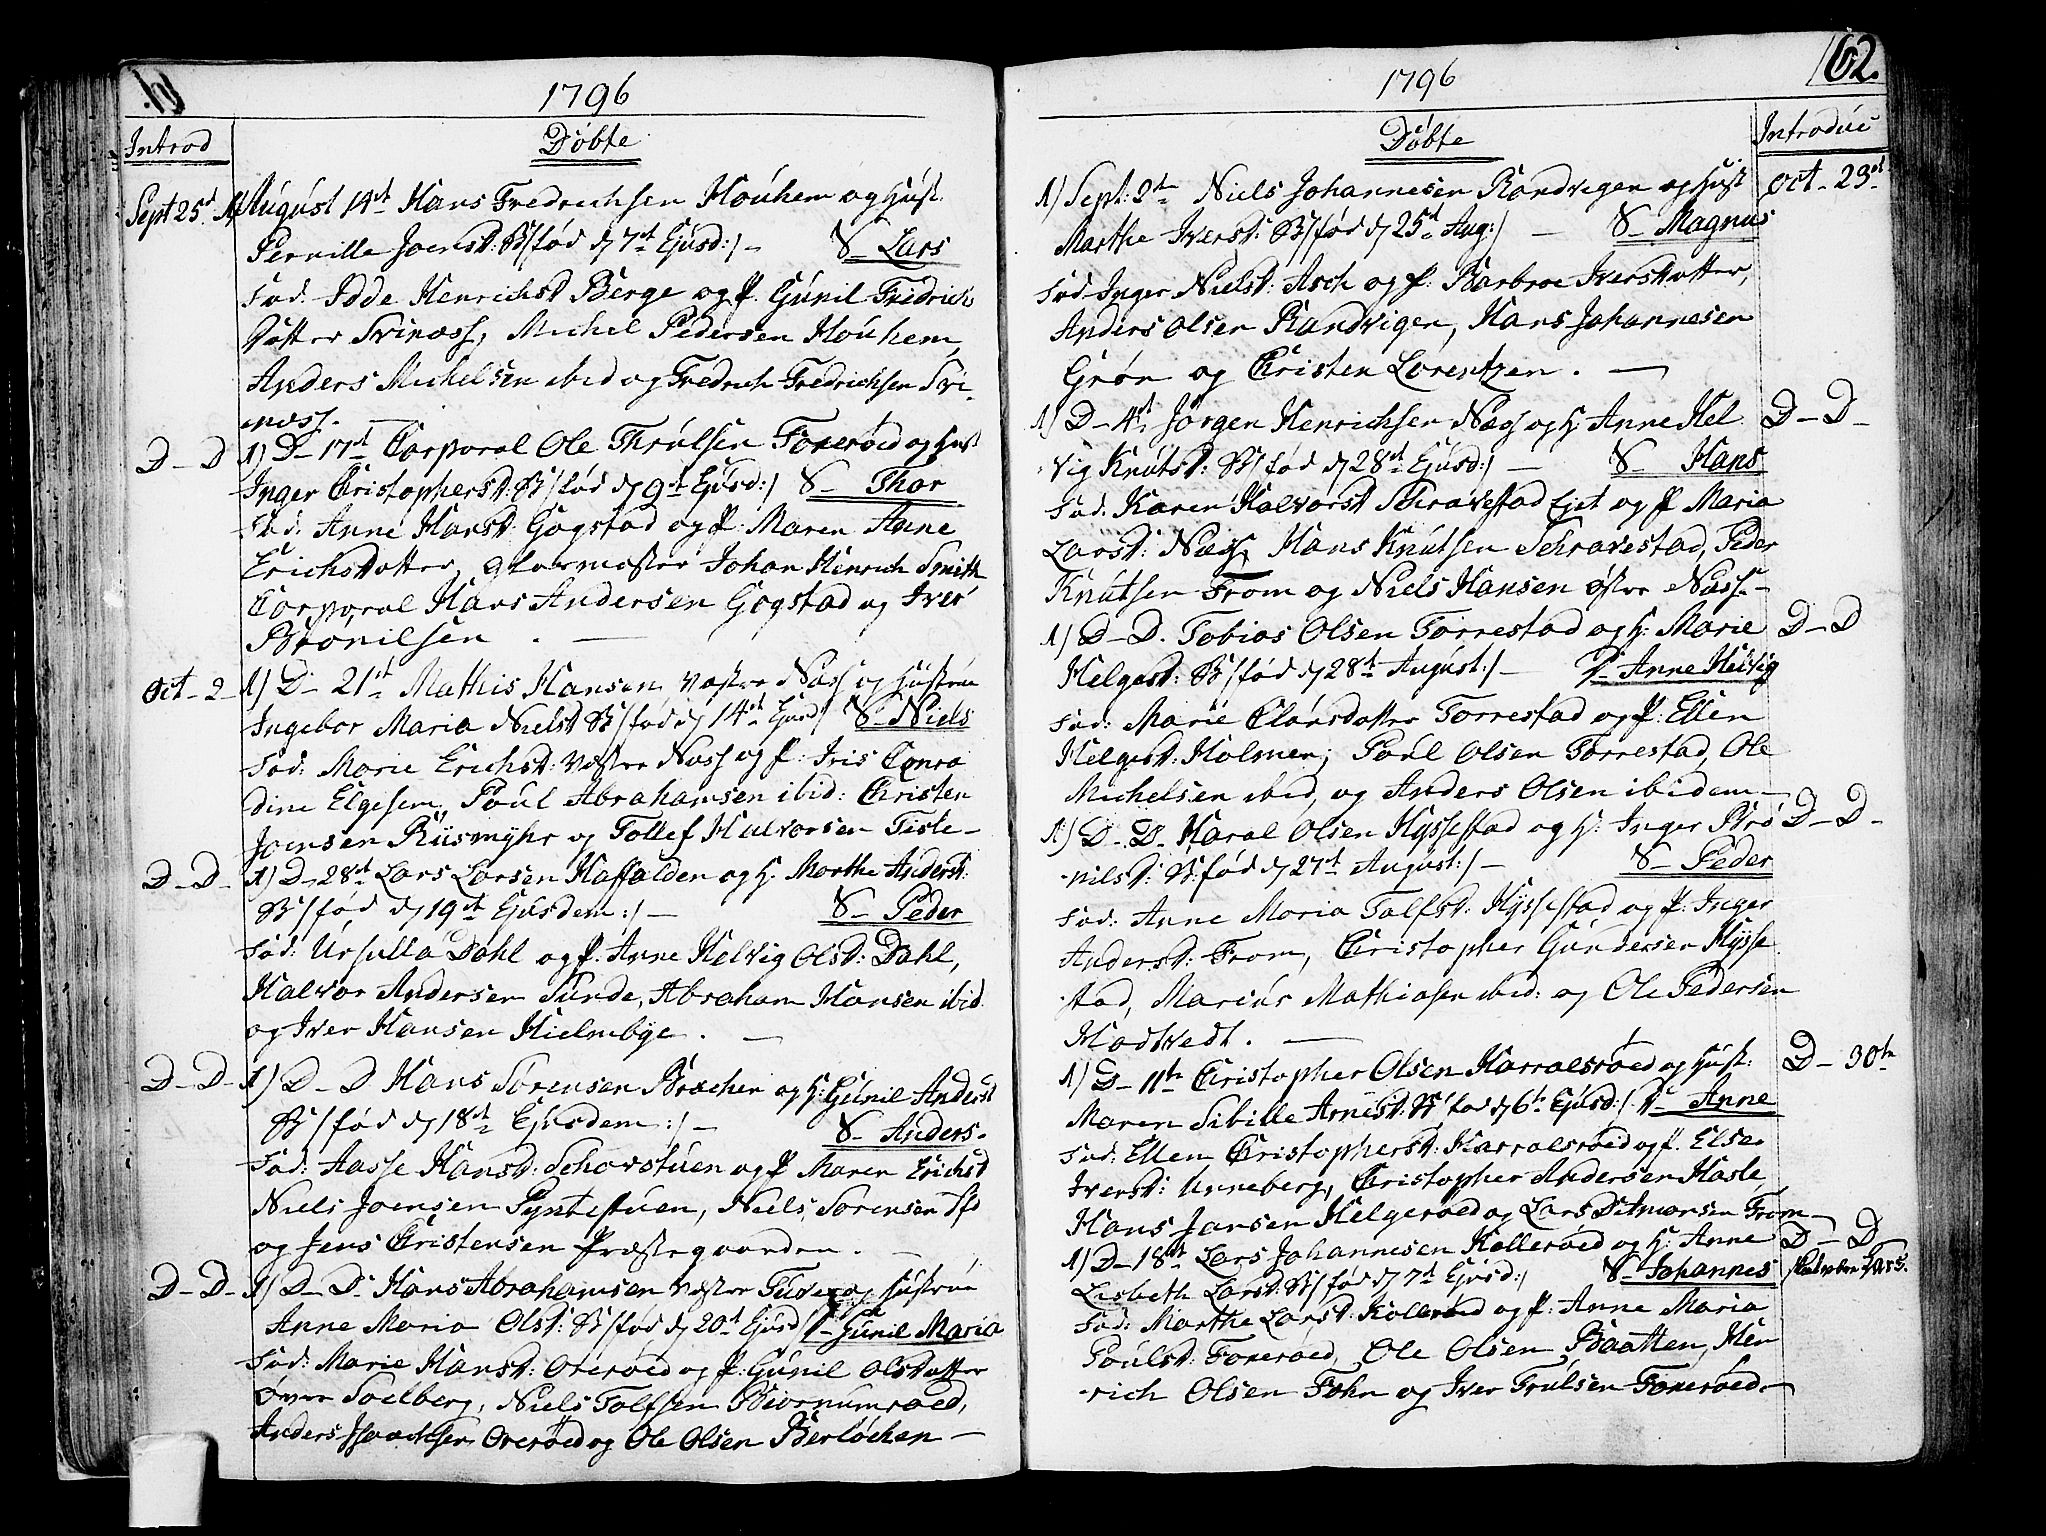 1796
Introd
Döbte
Sept 25d 1) August 14d Hans Fredrichsen Houhem og Hust.
Pernille Joensd: B/ fød d 7d Ejusd:/ - S_ Lars
Fad. Idde Henrichsd Berge og P. Gunil Fredrich
Datter Svinæss, Michel Pedersen Houhem,
Anders Michelsen ibid og Fredrich Fredrichsen Svi-
næss.
D - D 1) D - 17d Corporal Ole Thrulsen Foxerød og Hust
Inger Christophersd: B/ fød d 9d Ejusd:/ S_ Thor
Fad: Anne Hansd: Gogstad og P: Maren Anne
Erichsdatter, Glarmæster Johan Henrich Smith
Corporal Hans Andersen Gogstad og Iver
Bronilsen.
Oct - 2 - 1) D - 21d Mathis Hansen væstre Næss og Hustrue
Ingebor Maria Nielsd B/ fød d 14d Ejusd/ S_ Niels
Fad: Marie Erichsd: væstre Næss og P: Iris Conra
dine Elgesem, Poul Abrahamsen ibid: Christen
Joensen Riismyhr og Tollef Halvorsen Tiste-
D - D - 1) D - 28d Lars Larsen Haffalden og H: Marthe Andersd:
B/ fød d 19d Ejusdem:/ - S_ Peder
Fad: Ursulla Dahl og P. Anne Helvig Olsd: Dahl,
Halvor Andersen Sunde, Abraham Hansen ibid
og Iver Hansen Hielmbye.
D - D - 1) D - D Hans Sörensen Bræchen og H: Gunil Andersd
B/ fød d 18d Ejusdem:/ - S_ Anders.
Fad: Aasse Hansd: Schovstuen og P Maren Erichsd
Niels Joensen Pyntestuen, Niels Sörensen
og Jens Christensen Præstegaarden.
D - D - 1) D - D Hans Abrahamsen væstre Fuver og Hustrue
Anne Maria Olsd: B/ fød d 20d Ejusd P_ Gunil Maria
Fad: Marie Hansd: Overøed og P: Gunil Olsdatter
över Soelberg, Niels Tolfsen Biornumroed,
Anders Isaachsen Overöed og Ole Olsen Berlöchen -
1796
62.
Döbte
Introduc
1) Sept: 2de Niels Johannesen Randvigen og Hust Oct - 23d
Marthe Iversd: B/ fød d 25d Aug:/ - S_ Magnus
Fad. Inger Nielsd: Asch og P: Barbroe Iversdatter,
Anders Olsen Randvigen, Hans Johannesen
Grön og Christen Lorentzen.
1) D - 4d Jörgen Henrichsen Næss og H: Anne Hel D - D -
vig Knutsd: B/ fød d 28d Ejusd:/ - S_ Hans
Fad. Karen Halvorsd Schravestad Ejet og P Maria
Larsd: Næss, Hans Knutsen Schravestad, Peder
Knutsen From og Niels Hansen östre Næss -
1) D - D. Tobias Olsen Torrestad og H: Marie D - D
Helgesd: B/ fød d 28d August:/ - P_ Anne Helvig
Fad: Marie Clausdatter Torrestad og P: Ellen
Helgesd: Holmen, Poul Olsen Torrestad, Ole
Michelsen ibid, og Anders Olsen ibidem -
1) D - D. Haral Olsen Hyssestad og H: Inger Bro D - D -
nilsd: B: fød d 27d August:/ - S_ Peder
Fad: Anne Maria Tolfsd: Hyssestad og P: Inger
Andersd: From, Christopher Gundersen Hysse
stad, Marcus Mathiasen ibid: og Ole Pedersen
Hadvedt.
1) D - 11te Christopher Olsen Harralsroed og Hust: D - 30te
Maren Sibille Arnesd: B/ fød d 6te Ejusd:/ P_ Anne
Fad: Ellen Christophersd: Harralsroed og P. Else
Iversd: Unneberg, Christopher Andersen Hasle,
Hans Jansen Helgeroed og Lars Ditmarsen From -
1) D - 18de Lars Johannesen Kollerøed og H: Anne D - D
Lisbeth Larsd: B/ fød d 7d Ejusd:/ S_ Johannes
Fad: Marthe Larsd: Kolleröed og P: Anne Maria
Poulsd: Foxeroed, Ole Olsen Baatten, Hen
rich Olsen Fohn og Iver Trulsen Foxeröed -